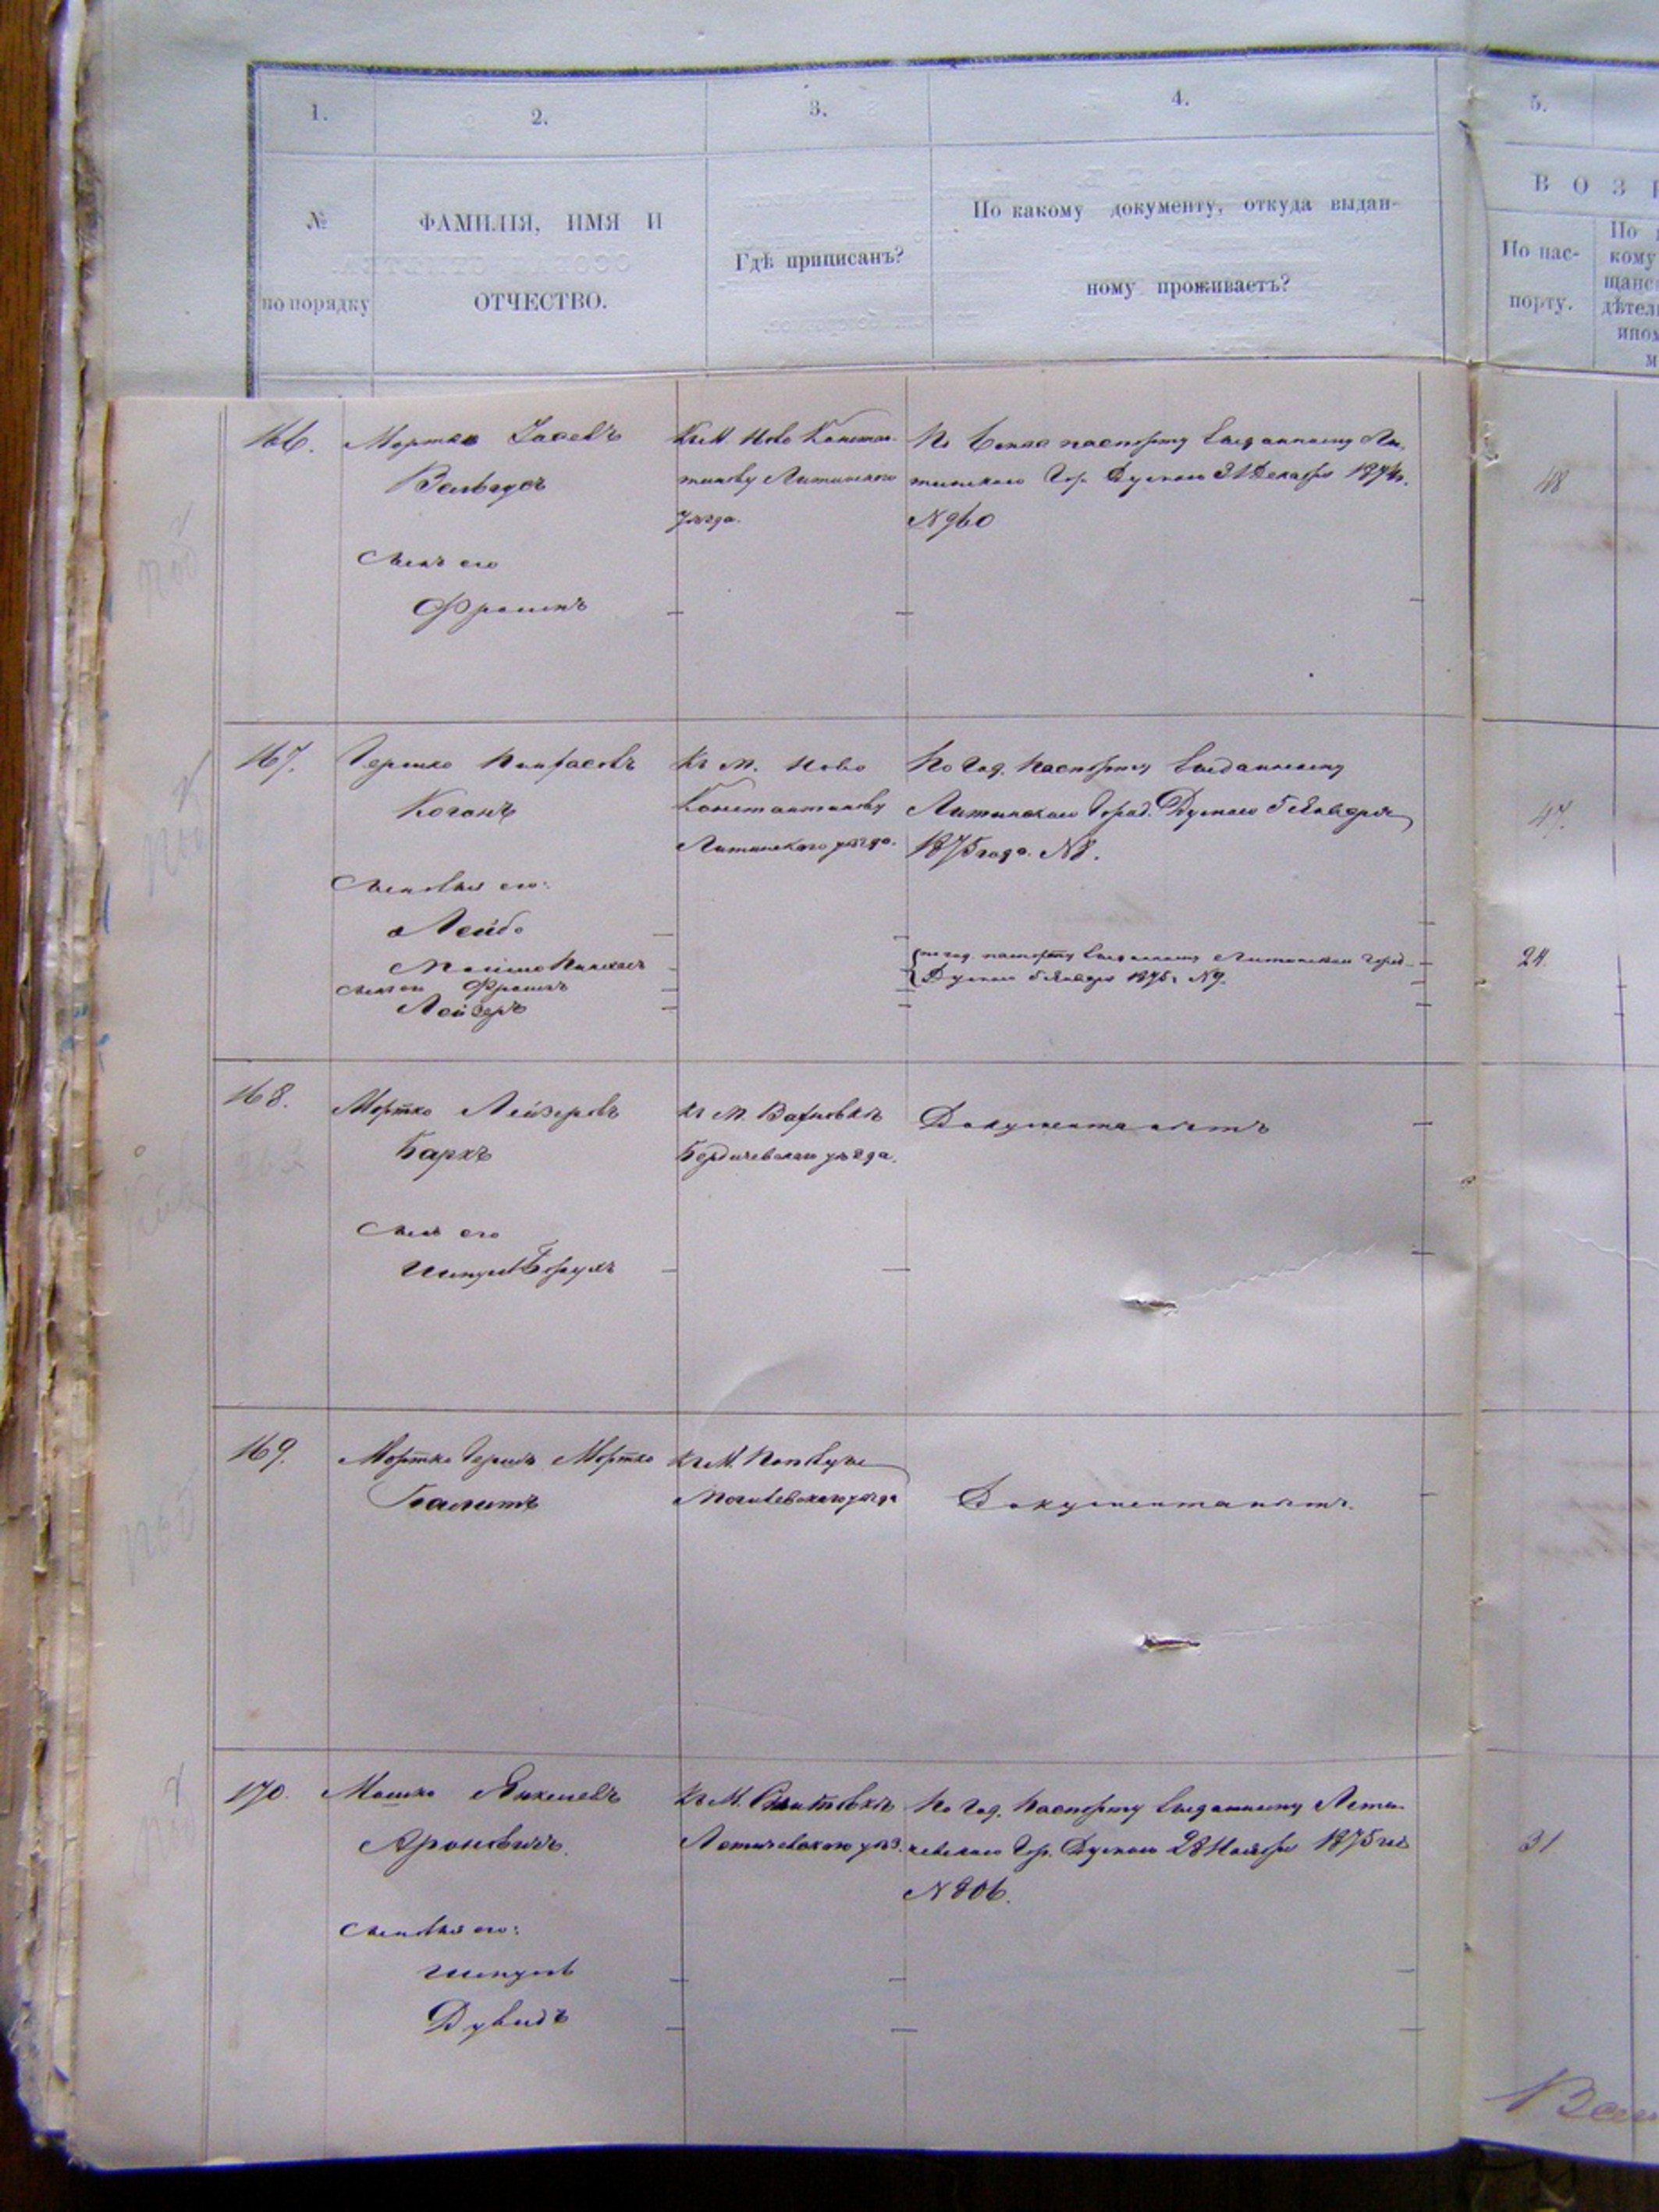 1.
2.
3.
4.
5.
№
по порядку
ФАМИЛІЯ, ИМЯ И
ОТЧЕСТВО.
Гдѣ приписанъ?
По какому документу, откуда выдан-
ному проживаетъ?
В О З
По пас-
порту.
По
кому
щанс
дѣтел
ином
м
166.
Мортко
Сынъ его
Фроимъ
Къ М Ново Констан-
тинову Литинского
уѣзда.
По паспорту выданному Ли-
тинскою Гор. Думою 31 Декабря 1874г.
№ 960
48
167.
Гершко Пинхасовъ
Коганъ
Сыновья его:
Лейбо
Мошко Пинхасъ
Сынъ его Фроимъ
Лейзеръ
Къ М. Ново
Константинову
Литинского уѣзда.
По год. паспорту выданному
Литинскою Город. Думою 5 Января
1875 года. № 8.
по год. паспорту выданному Литинскою Город
Думою 5 Января 1875г. № 9.
47.
24.
168.
Мортко Лейзеровъ
Бархъ
Сынъ его
Шмуль Борухъ
Къ М. Вахновкѣ
Бердичевскаго уѣзда.
Документа нѣтъ
169.
Мортко Гершъ Мортко
Къ М. Поповцы
Могилевскаго уѣзда
Документа нѣтъ.
170.
Мошко Янкелевъ
Ароновичъ.
Сыновья его:
Шмуль
Дувидъ
Къ М.
Летичевского уѣз.
По год. паспорту выданному Лети-
чевскою Гор. Думою 28 Ноября 1875
№ 806.
31